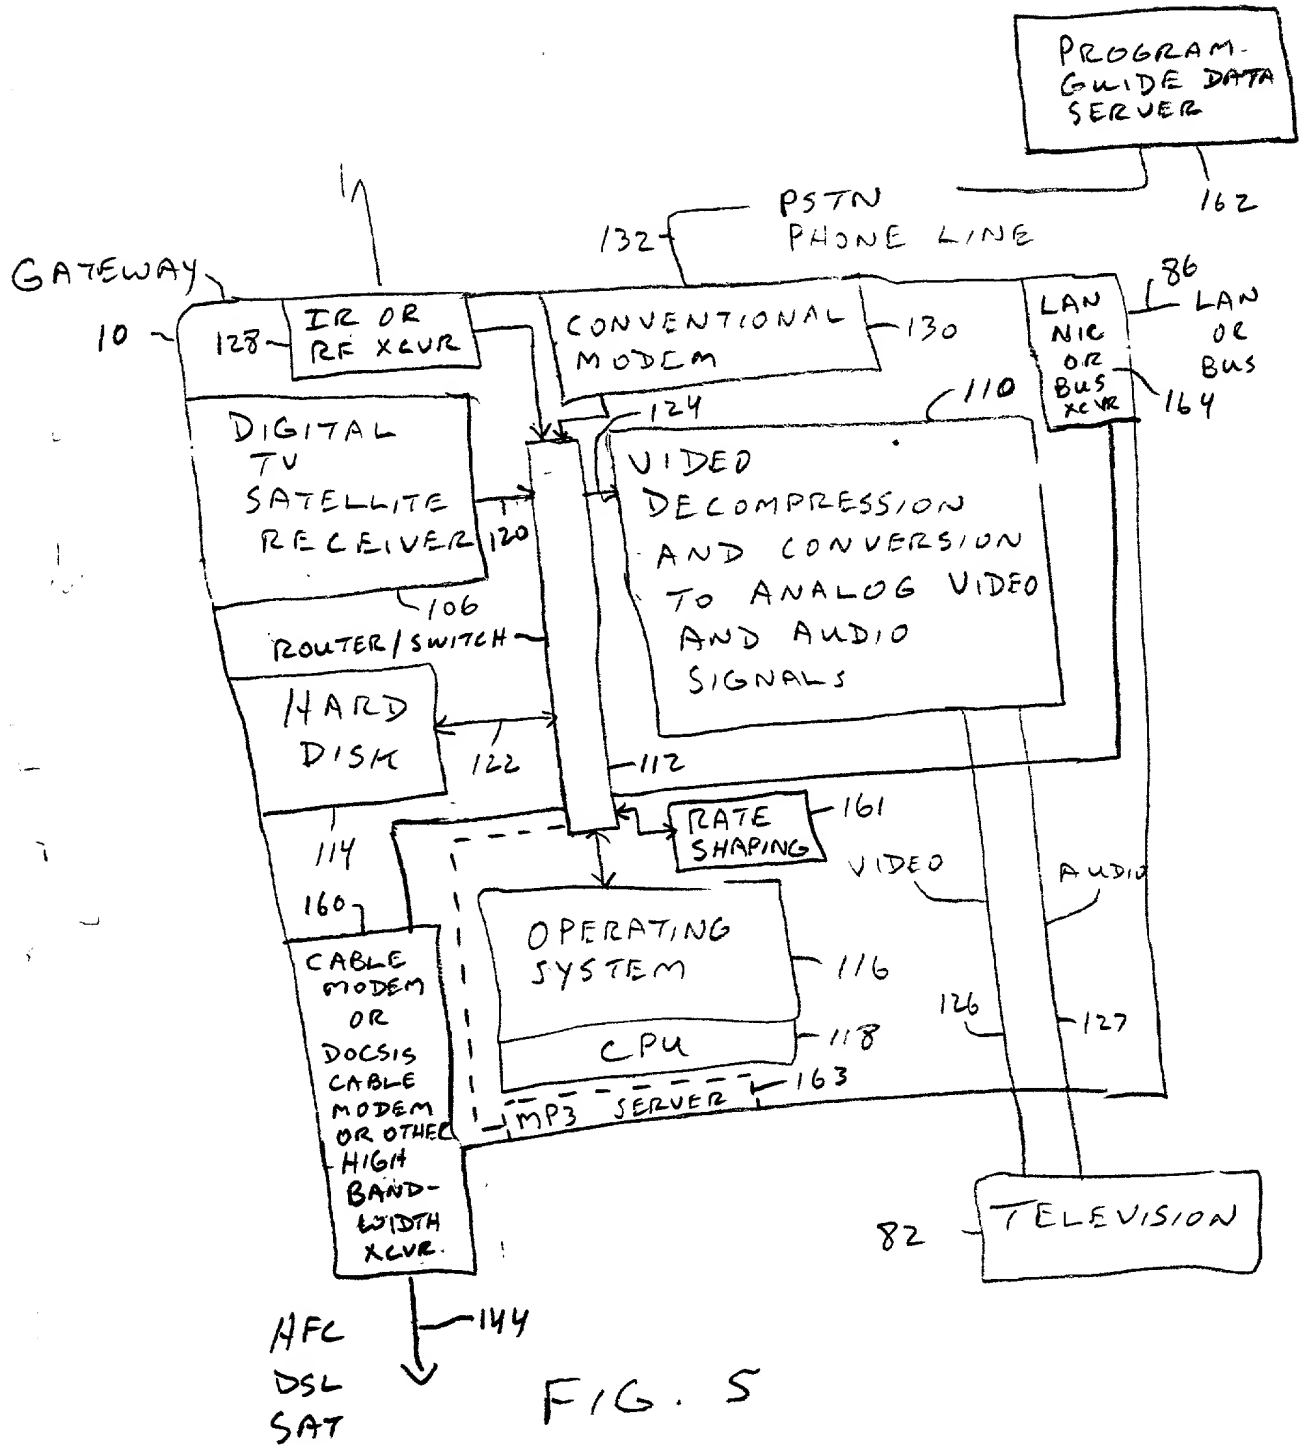 PROGRAM-
GUIDE DATA
SERVER
162
PSTN
PHONE LINE
132
GATEWAY
10
128
IR OR
RF XCVR
CONVENTIONAL
MODEM
130
LAN
NIC
OR
BUS
XCVR
86
LAN
OR
BUS
164
124
110
DIGITAL
TV
SATELLITE
RECEIVER
120
106
VIDEO
DECOMPRESSION
AND CONVERSION
TO ANALOG VIDEO
AND AUDIO
SIGNALS
ROUTER/SWITCH
HARD
DISK
122
112
114
RATE
SHAPING
161
VIDEO
AUDIO
160
CABLE
MODEM
OR
DOCSIS
CABLE
MODEM
OR OTHER
HIGH
BAND-
WIDTH
XCVR.
OPERATING
SYSTEM
116
CPU
118
MP3 SERVER
163
126
127
82
TELEVISION
144
HFC
DSL
SAT
FIG. 5